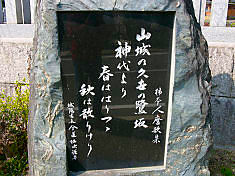 柿本人麿歌集
山城の久世の鷺坂
神代より
春ははりつつ
秋は散りけり